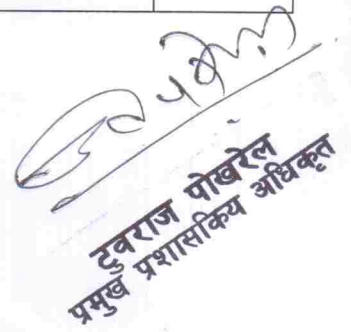 टुवराज पोखरेल
प्रमुख प्रशासकिय अधिकृत